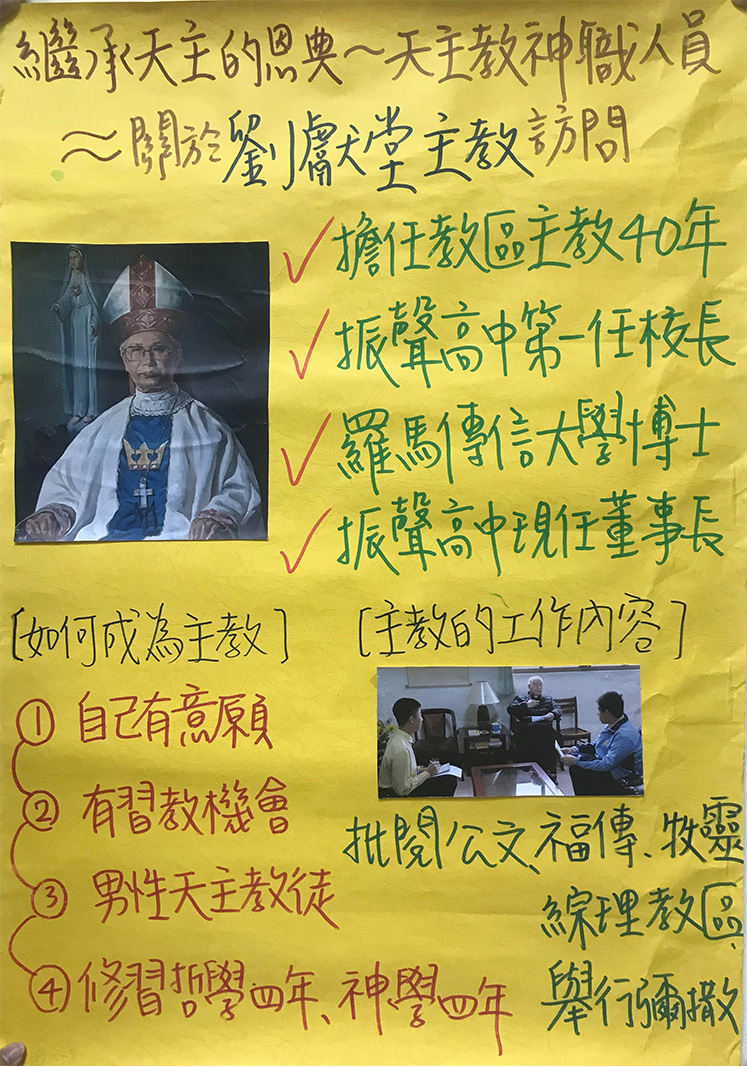 繼承天主的恩典～天主教神職人員
～關於劉獻堂主教訪問
擔任教區主教40年
振聲高中第一任校長
羅馬傳信大學博士
振聲高中現任董事長
[如何成為主教]
① 自己有意願
② 有習教機會
③ 男性天主教徒
④ 修習哲學四年、神學四年
[主教的工作內容]
批閱公文、福傳、牧靈
綜理教區、
舉行彌撒